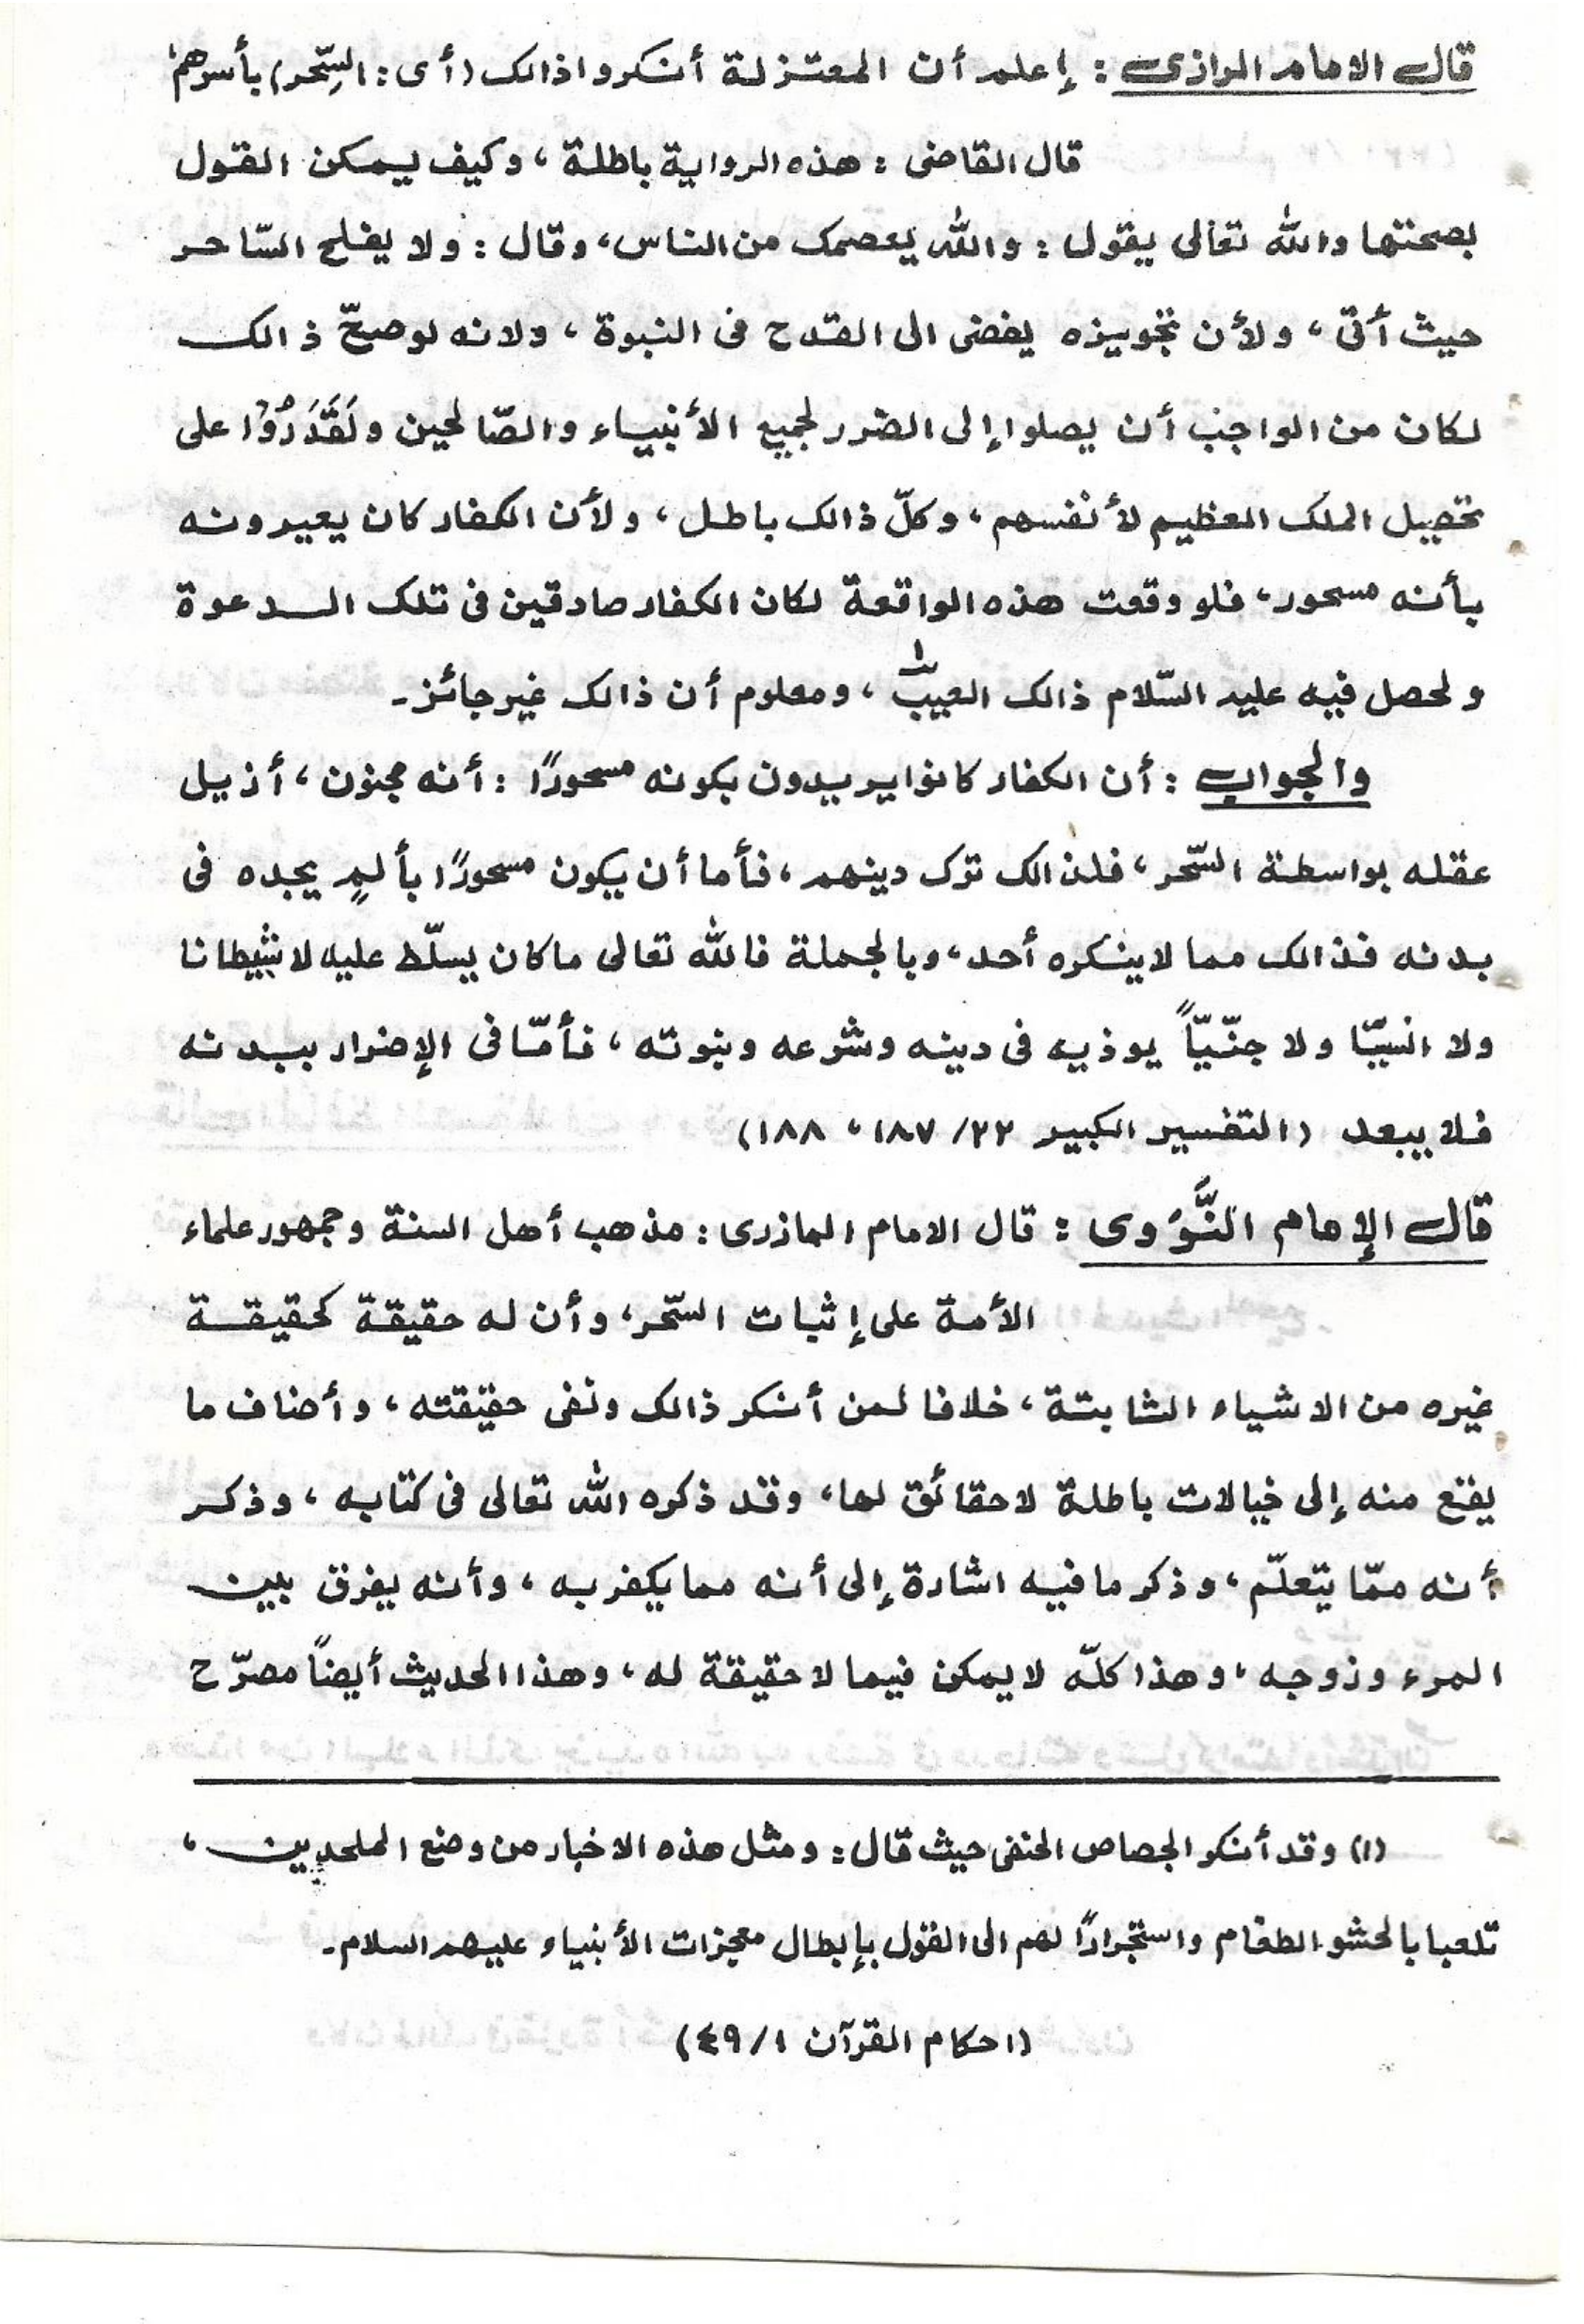 قال الامام الرازى : إعلم أن المعتزلة أنكروا ذالك (أى : السِّحر) بأسرهم
قال القاضى : هذه الرواية باطلة ، وكيف يمكن القول
بصحتها والله تعالى يقول : والله يعصمك من الناس ، وقال : ولا يفلح السّاحر
حيث أتى ، ولأن تجويزه يفضى الى القدح فى النبوة ، ولانه لو صحّ ذالك
لكان من الواجب أن يصلوا إلى الضرر لجميع الأنبياء والصّالحين ولَقَدَرُوْا على
تحصيل الملك العظيم لأنفسهم ، وكلّ ذالك باطل ، ولأن الكفار كان يعيرونه
بأنه مسحور ، فلو وقعت هذه الواقعة لكان الكفار صادقين فى تلك الدعوة
ولحصل فيه عليه السّلام ذالك العيب ١ ، ومعلوم أن ذالك غير جائز ۔
والجواب : أن الكفار كانوا يريدون بكونه مسحورًا : أنه مجنون ، أزيل
عقله بواسطة السّحر ، فلذالك ترك دينهم ، فأما أن يكون مسحورًا بألمٍ يجده فى
بدنه فذالك مما لا ينكره أحد ، وبالجملة فالله تعالى ما كان يسلّط عليه لا شيطانا
ولا انسيّا ولا جنّيّاً يوذيه فى دينه وشرعه ونبوته ، فأمّا فى الإضرار ببدنه
فلا يبعد (التفسير الكبير ٢٢/ ١٨٧ ، ١٨٨)
قال الإمام النَّوَوى : قال الامام المازرى : مذهب أهل السنة وجمهور علماء
الأمة على إثبات السّحر ، وأن له حقيقة كحقيقة
غيره من الاشياء الثابتة ، خلافا لمن أنكر ذالك ونفى حقيقته ، وأضاف ما
يقع منه إلى خيالات باطلة لا حقائق لها ، وقد ذكره الله تعالى فى كتابه ، وذكر
أنه ممّا يتعلّم ، وذكر ما فيه اشارة إلى أنه مما يكفر به ، وأنه يفرق بين
المرء وزوجه ، وهذا كلّه لا يمكن فيما لا حقيقة له ، وهذا الحديث أيضاً مصرّح
(١) وقد أنكر الجصاص الحنفى حيث قال : ومثل هذه الاخبار من وضع الملحدين ،
تلعبا بالحشو الطغام واستجرارًا لهم الى القول بإبطال معجزات الأنبياء عليهم السلام ۔
(احكام القرآن ١/ ٤٩)